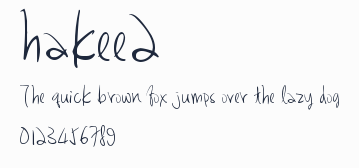 hakeed
The quick brown fox jumps over the lazy dog
0123456789